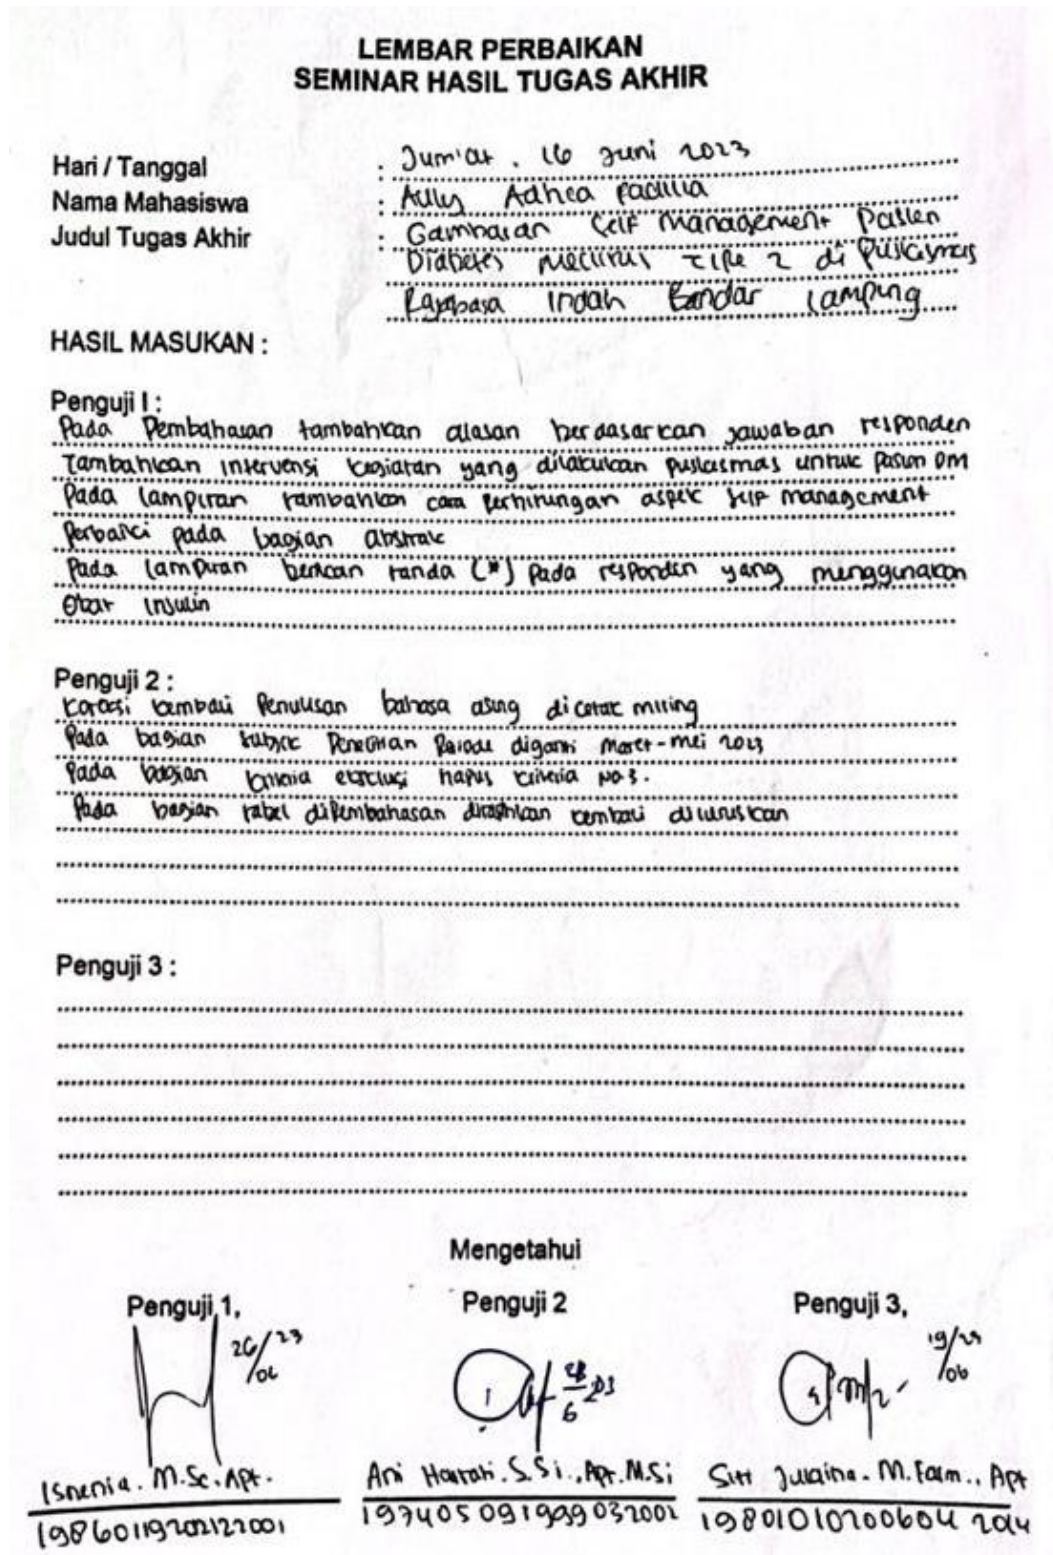 LEMBAR PERBAIKAN
SEMINAR HASIL TUGAS AKHIR
Hari / Tanggal : Jum'at, 16 Juni 2023
Nama Mahasiswa : Aully Adhea Fadilla
Judul Tugas Akhir : Gambaran Self Management Pasien
Diabetes Mellitus Tipe 2 di Puskesmas
Rajabasa Indah Bandar Lampung
HASIL MASUKAN :
Penguji I :
Pada Pembahasan tambahkan alasan berdasarkan jawaban responden
Tambahkan intervensi kegiatan yang dilakukan puskesmas untuk pasien DM
Pada lampiran tambahkan cara perhitungan aspek self management
Perbaiki pada bagian abstrak
Pada lampiran berikan tanda (*) pada responden yang menggunakan
Obat Insulin
Penguji 2 :
Koreksi kembali Penulisan bahasa asing dicetak miring
Pada bagian subjek Penelitian Periode diganti Maret-Mei 2023
Pada bagian kriteria eksklusi hapus kriteria No 3.
Pada bagian tabel dipembahasan dirapihkan kembali diluruskan
Penguji 3 :
Mengetahui
Penguji 1, Penguji 2 Penguji 3,
26/06 23 6 23 19/06 23
Isnenia. M.Sc., Apt. Ani Hartati. S.Si., Apt. M.Si Siti Julaiha. M.Farm., Apt
198601192021 22001 197405091999032001 198010102006042014